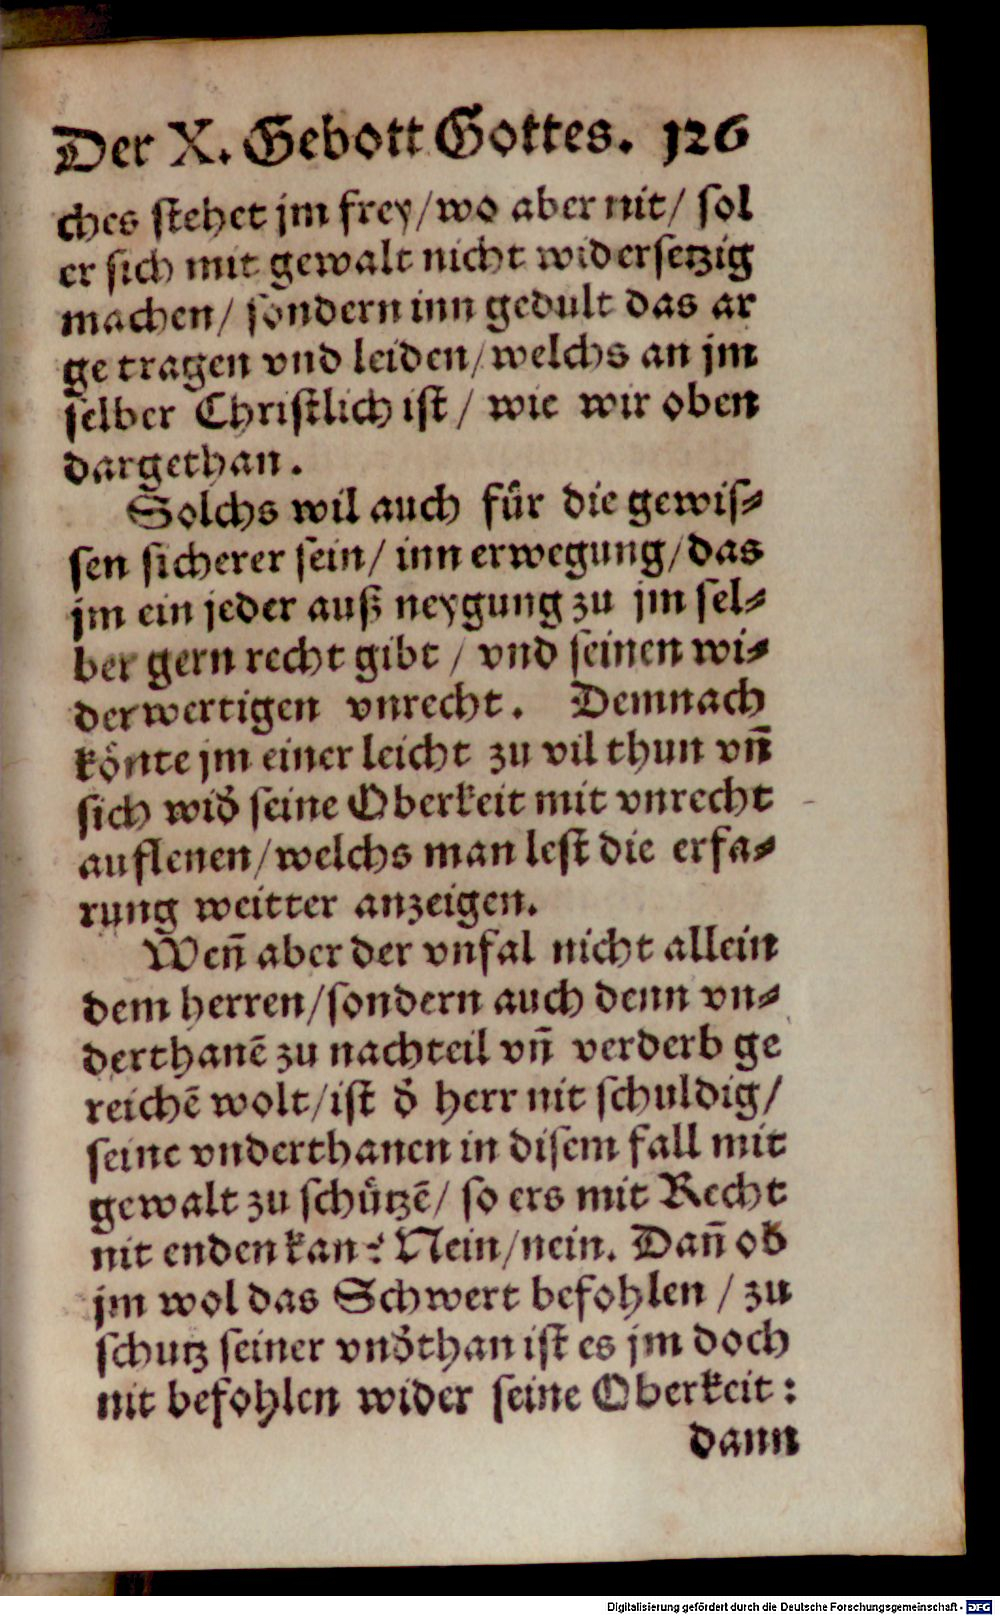 Der X. Gebott Gottes. 126
ches stehet jm frey/wo aber nit/ sol
er sich mit gewalt nicht widersetzig
machen/ sondern inn gedult das ar
ge tragen vnd leiden/welchs an jm
selber Christlich ist / wie wir oben
dargethan.
Solchs wil auch für die gewis⸗
sen sicherer sein/ inn erwegung/das
jm ein jeder auß neygung zu jm sel⸗
ber gern recht gibt / vnd seinen wi⸗
derwertigen vnrecht. Demnach
könte jm einer leicht zu vil thun vn̄
sich wid̕ seine Oberkeit mit vnrecht
auflenen/welchs man lest die erfa⸗
rung weitter anzeigen.
Wen̄ aber der vnfal nicht allein
dem herren/sondern auch denn vn⸗
derthanē zu nachteil vn̄ verderb ge
reichē wolt/ist d̕ herr nit schuldig/
seine vnderthanen in disem fall mit
gewalt zu schützē/ so ers mit Recht
nit enden kan? Nein/nein. Dan̄ ob
jm wol das Schwert befohlen / zu
schutz seiner vnd̕than ist es jm doch
nit befohlen wider seine Oberkeit:
dann
Digitalisierung gefördert durch die Deutsche Forschungsgemeinschaft - DFG